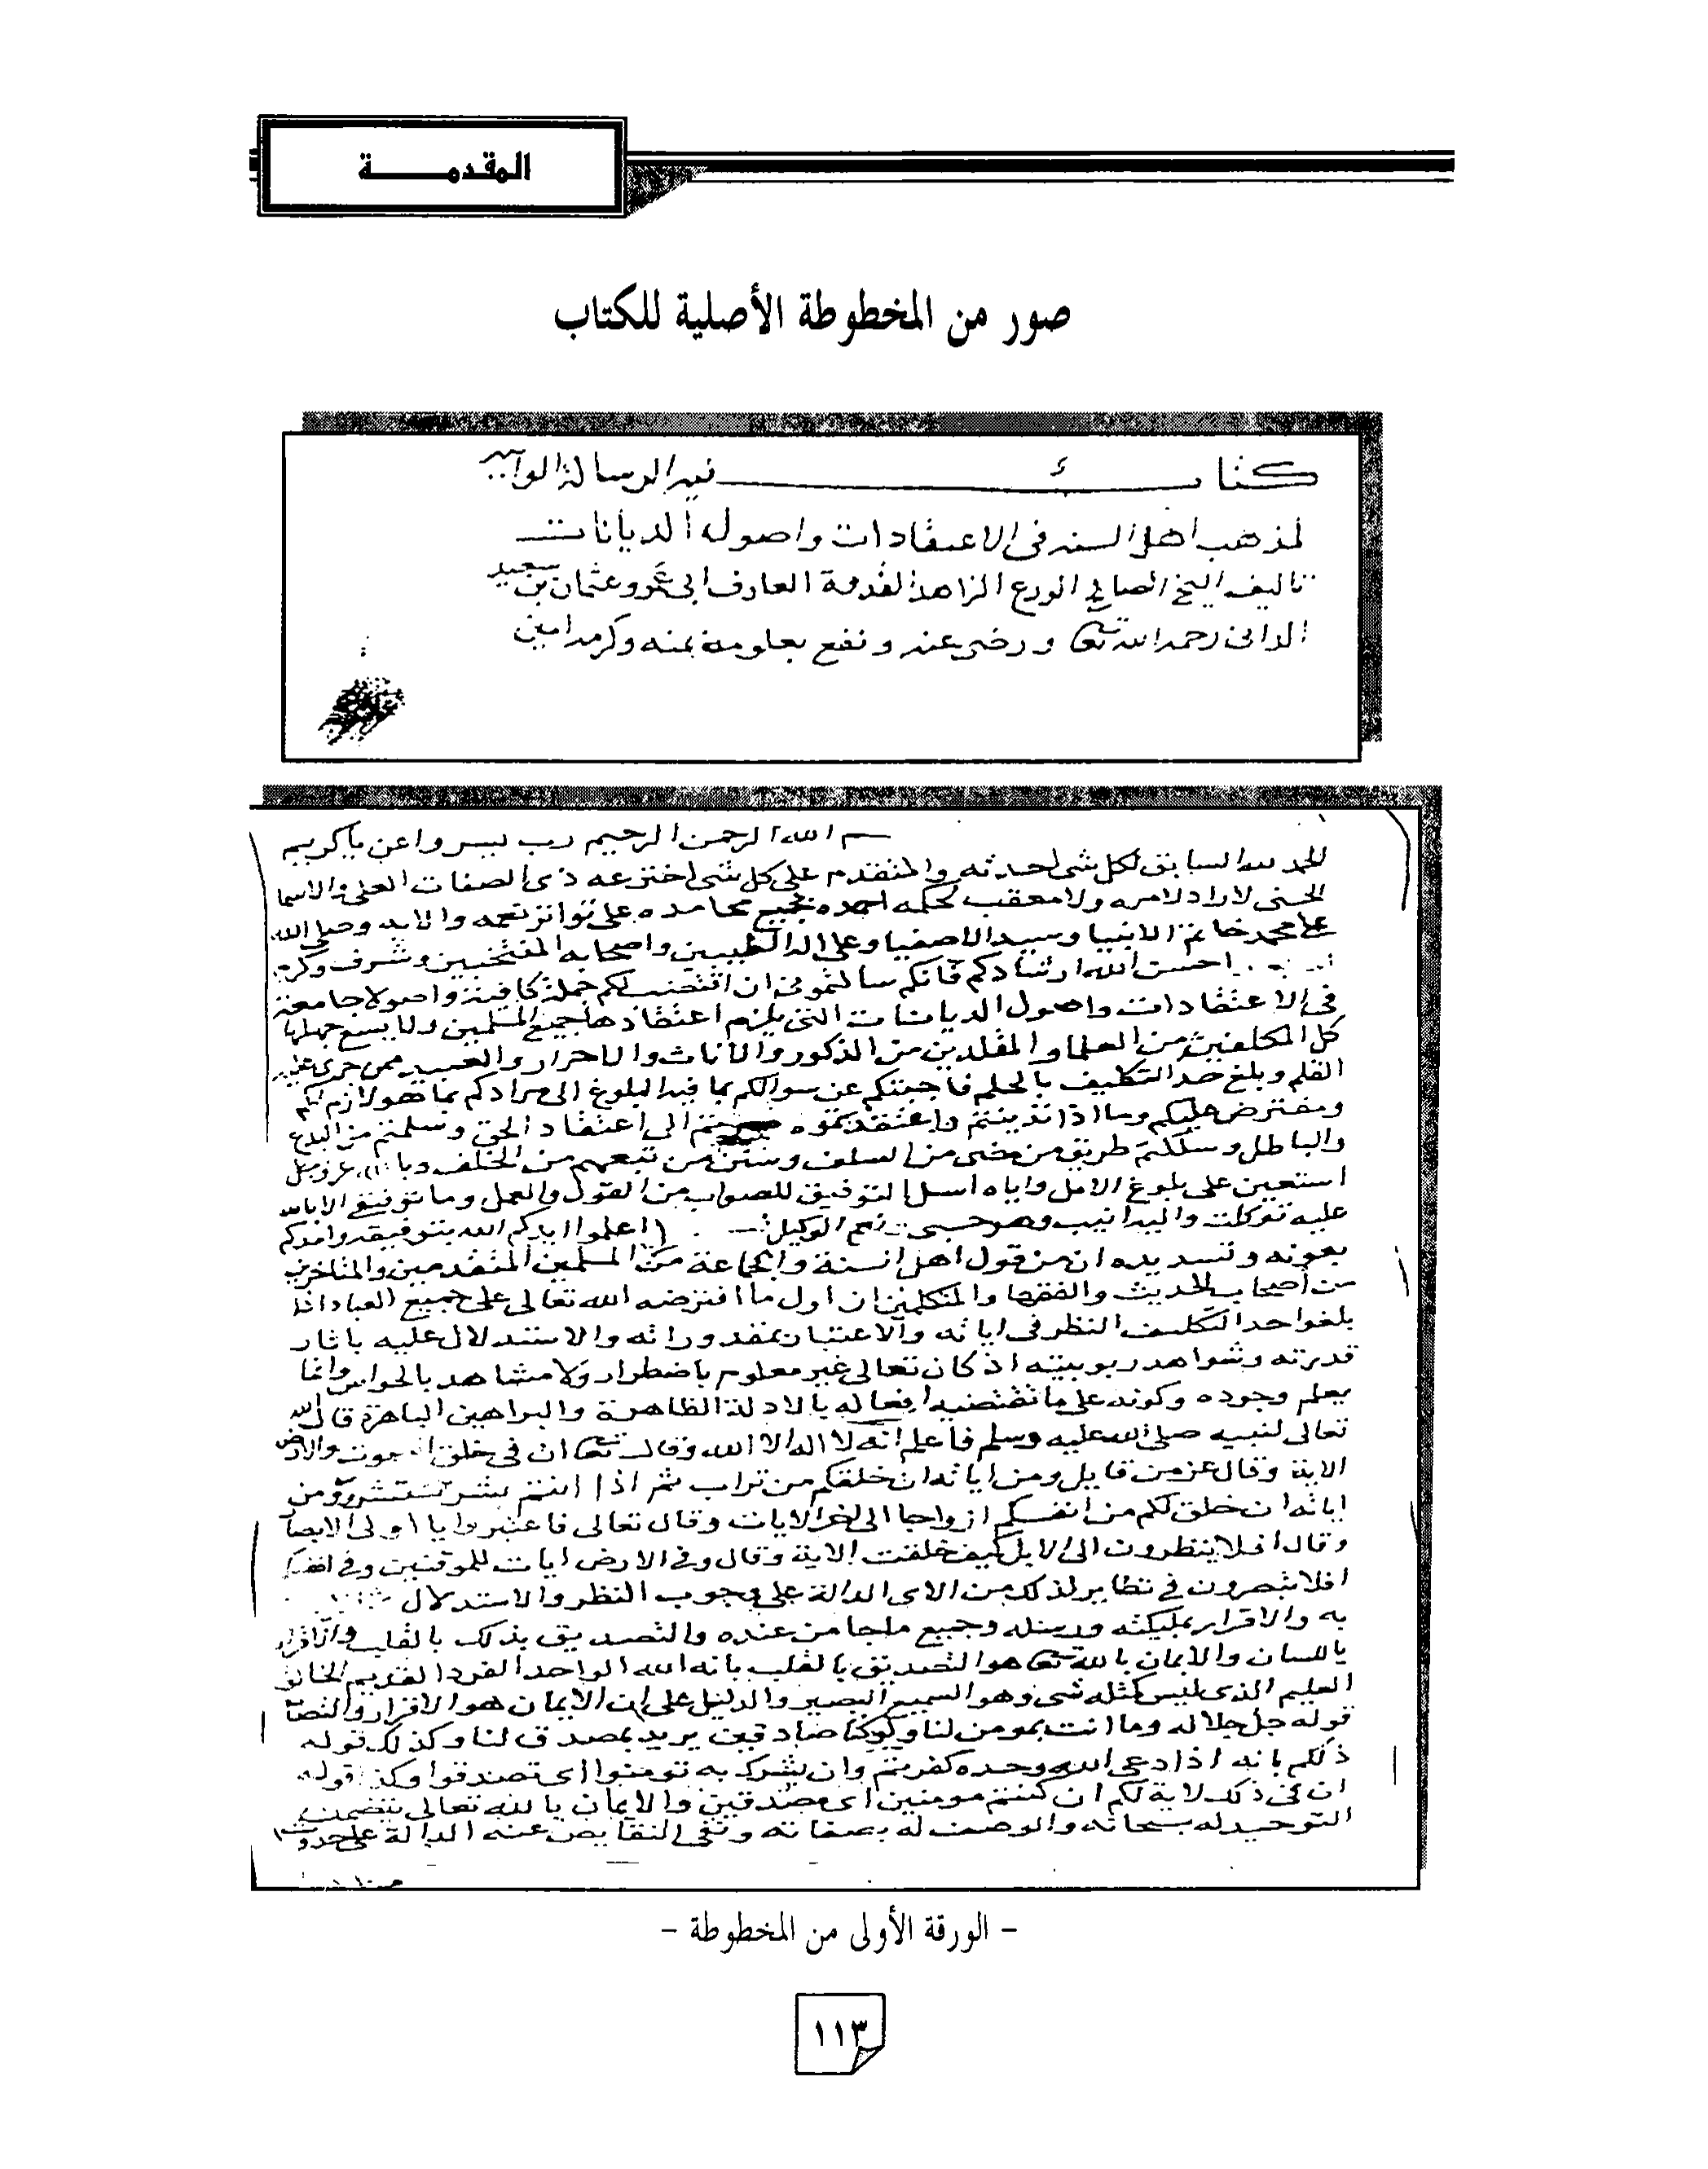 المقدمــــــة
صور من المخطوطة الأصلية للكتاب
كتاب فيه الرسالة الوا
لمذهب اهل السنه فى الاعتقادات واصول الديانات
تاليف الشيخ الصالح الورع الزاهد القدوة العارف ابى عمرو عثمان بن سعيد
الدانى رحمه الله تعا ورضى عنه ونفع بعلومه بمنه وكرمه امين
بسم الله الرحمن الرحيم رب يسر واعن يا كريم
الحمد لله السابق لكل شى احدثه والمتقدم على كل شى اخترعه ذى الصفات العلى والاسما
الحسنى لا راد لامره ولا معقب لحكمه احمده بجميع محامده على تواتر نعمه والايه وصلى الله
على محمد خاتم الانبيا وسيد الاصفيا وعلى اله الطيبين واصحابه المنتخبين وشرف وكرم
احسن الله ارشادكم فانكم سالتمونى ان اقتضب لكم جملة كافية واصولا جامعة
فى الاعتقادات واصول الديانات التى يلزم اعتقادها جميع المسلمين ولا يسع جهلها
كل المكلفين من العلما والمقلدين من الذكور والاناث والاحرار والعبيد ممن جرى عليه
القلم وبلغ حد التكليف بالحلم فاجبتكم عن سوالكم بما فيه البلوغ الى مرادكم بما هو لازم لكم
ومفترض عليكم وما اذا تدينتم واعتقدتموه الى اعتقاد الحق وسلمتم من البدع
والباطل وسلكتم طريق من مضى من السلف وسنن من تبعهم من الخلف وبا عز وجل
استعين على بلوغ الامل واياه اسل التوفيق للصواب من القول والعمل وما توفيقى الا بالله
عليه توكلت واليه انيب وهو حسبى نعم الوكيل اعلموا ايدكم الله بتوفيقه وامدكم
بعونه وتسديده ان من قول اهل السنة والجماعة من المسلمين المتقدمين والمتاخرين
من اصحاب الحديث والفقها والمتكلمين ان اول ما افترضه الله تعالى على جميع العباد اذا
بلغوا حد التكليف النظر فى اياته والاعتبار بمقدوراته والاستدلال عليه باثار
قدرته وشواهد ربوبيته اذ كان تعالى غير معلوم باضطرار ولا مشاهد بالحواس وانما
يعلم وجوده وكونه على ما تقتضيه افعاله بالادلة الظاهرة والبراهين الباهرة قال الله
تعالى لنبيه صلى الله عليه وسلم فاعلم انه لا اله الا الله وقال تعا ان فى خلق والارض
الاية وقال عز من قايل ومن اياته ان خلقكم من تراب ثم اذا انتم بشر تنتشرون ومن
اياته ان خلق لكم من انفسكم ازواجا الى اخر الايات وقال تعالى فاعتبروا يا اولى الابصار
وقال افلا ينظرون الى الابل كيف خلقت الاية وقال وفى الارض ايات للموقنين وفى انفسكم
افلا تبصرون فى نظاير لذلك من الاى الدالة على وجوب النظر والاستدلال
به والاقرار بمليكته ورسله وجميع ما جا من عنده والتصديق بذلك بالقلب والاقرار
باللسان والايمان بالله تعا هو التصديق بالقلب بانه الله الواحد الفرد القديم الخالق
العليم الذى ليس كمثله شى وهو السميع البصير والدليل على ان الايمان هو الاقرار والتصا
قوله جل جلاله وما انت بمومن لنا ولو كنا صادقين يريد بمصدق لنا وكذلك قوله
ذلكم بانه اذا دعى الله وحده كفرتم وان يشرك به تومنوا اى تصدقوا وكذا قوله
ان فى ذلك لاية لكم ان كنتم مومنين اى مصدقين والايمان بالله تعالى يتضمن
التوحيد له سبحانه والوصف له بصفاته ونفى النقايص عنه الدالة على حدوث
- الورقة الأولى من المخطوطة -
١١٣